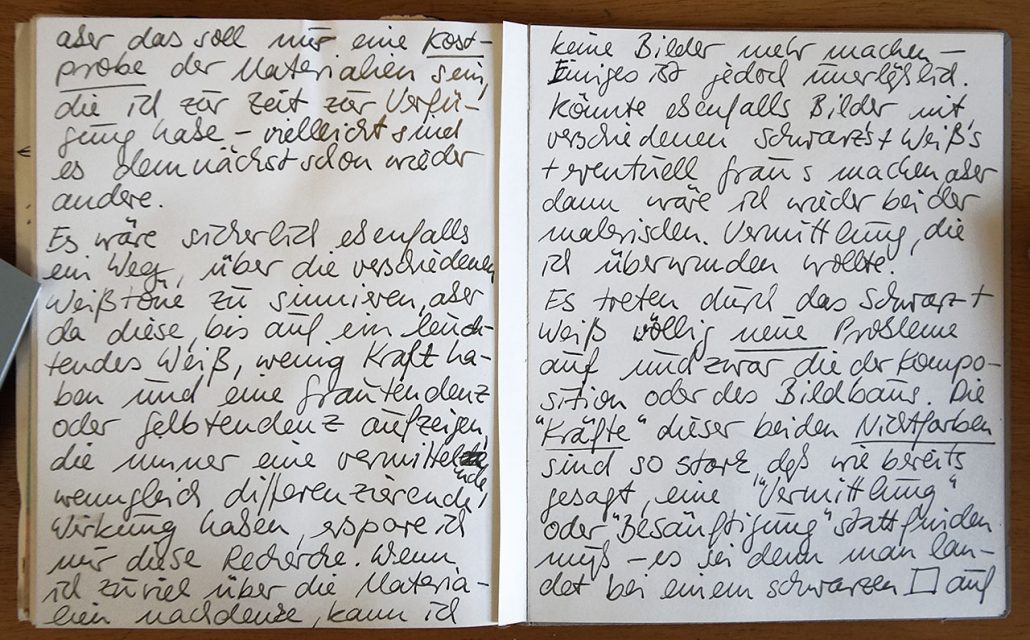 aber das soll nur eine Kost-
probe der Materialien sein,
die ich zur Zeit zur Verfü-
gung habe – vielleicht sind
es demnächst schon wieder
andere.
Es wäre sicherlich ebenfalls
ein Weg, über die verschiedenen
Weißtöne zu sinnieren, aber
da diese, bis auf ein leuch-
tendes Weiß, wenig Kraft ha-
ben und eine Grautendenz
oder Gelbtendenz aufzeigen,
die immer eine vermittelnde,
wenngleich differenzierende,
Wirkung haben, erspare ich
mir diese Recherche. Wenn
ich zuviel über die Materia-
lien nachdenke, kann ich
keine Bilder mehr machen –
Einiges ist jedoch unerläßlich.
Könnte ebenfalls Bilder mit
verschiedenen Schwarz's + Weiß's
+ eventuell Grau's machen, aber
dann wäre ich wieder bei der
malerischen Vermittlung, die
ich überwinden wollte.
Es treten durch das Schwarz +
Weiß völlig neue Probleme
auf und zwar die der Kompo-
sition oder des Bildbaus. Die
"Kräfte" dieser beiden Nichtfarben
sind so stark, daß wie bereits
gesagt, eine "Vermittlung"
oder "Besänftigung" stattfinden
muß – es sei denn man lan-
det bei einem schwarzen □ auf